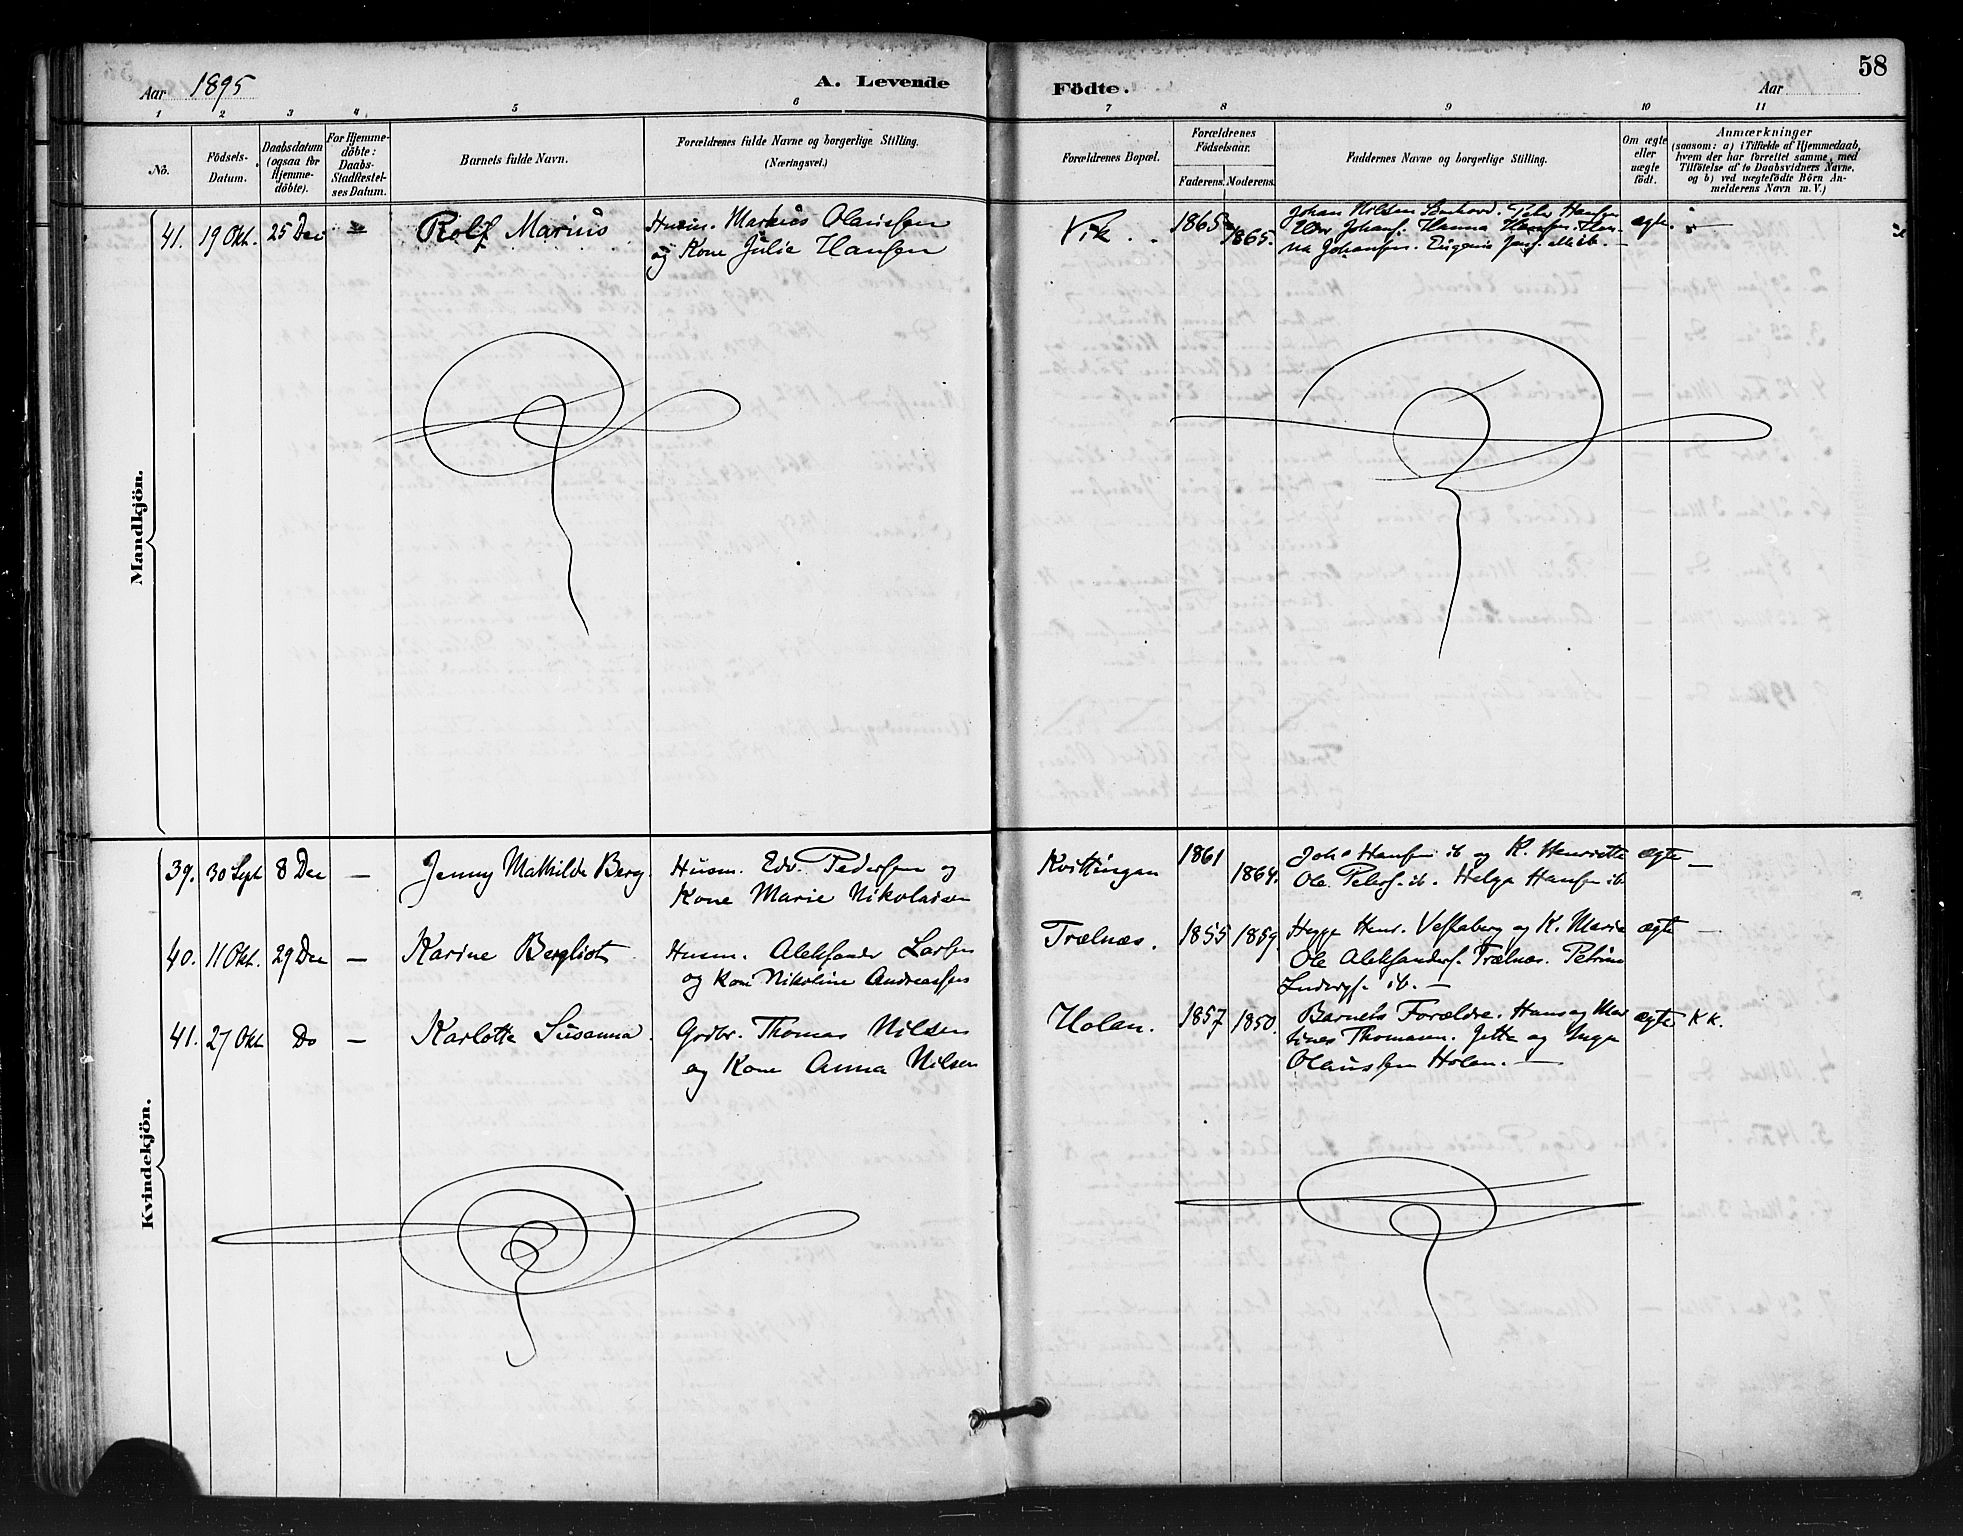 58
Aar 1895
A. Levende
Födte.
Aar
1 2 3 4 5 6 7 8 9 10 11
No.
Födsels-Datum.
Daabsdatum (ogsaa för Hjemmedöbte).
For Hjemmedöbte: Daabs-Stadfæstelses Datum.
Barnets fulde Navn.
Forældrenes fulde Navne og borgerlige Stilling.
(Næringsvei.)
Forældrenes Bopæl.
Forældrenes Födselsaar.
Faderens. Moderens.
Faddernes Navne og borgerlige Stilling.
Om ægte eller uægte födt.
Anmærkninger
(saasom: a) i Tilfælde af Hjemmedaab, hvem der har forrettet samme, med Tilföielse af to Daabsvidners Navne, og b) ved uægtefödte Börn Anmelderens Navn m. V.)
Mandkjön.
41. 19 Okt. 25 Dec — Rolf Marius
Husm. Markus Olaussen
og Kone Julie Hansen
Vik. 1865 1865.
Johan Nilsen Peder Hansen
Johans. Hanna Hansen.
Johansen. Eugenie Jens. alle ib. —
ægte. —
Kvindekjön.
39. 30 Sept 8 Dec — Jenny Mathilde Berg.
Husm. Edv. Pedersen og
Kone Marie Nikolaisen
Kvittingen 1861 1864.
Joh. Hansen ib og K. Henriette
Ole Peders. ib. Helga Hansen ib
ægte —
40. 11 Okt. 29 Dec — Karine Bergliot
Husm. Aleksander Larsen
og Kone Nikoline Andreassen
Trælnæs. 1855 1859.
Henr. Vestaberg og K. Marie
Ole Aleksanders. Trælnæs. Petrine
Ludvigs. ib. —
ægte —
41. 27 Okt Do — Karlotte Susanna.
Grdbr. Thomas Nilsen
og Kone Anna Nilsen
Holan. 1857 1850.
Barnets Forældre. Hans og Mar
tines Thomasen. Jetta og Inga
Olaussen Holan. —
ægte K k.